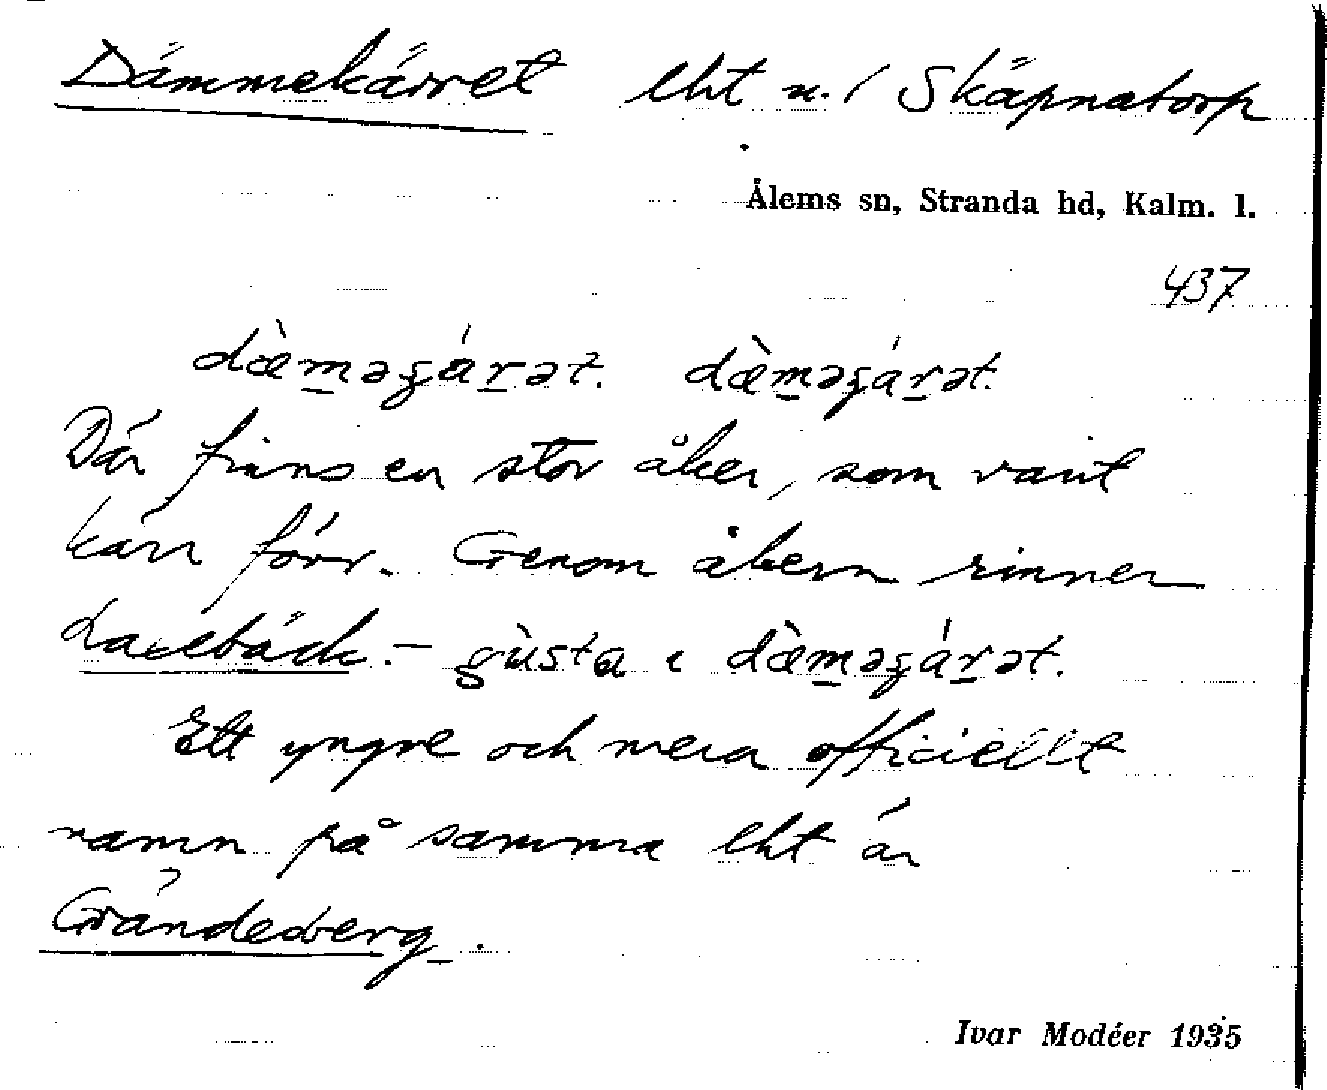 Dämmekärret lht u. / Skäpnatorp
Ålems sn, Stranda hd, Kalm. l.
437
dæ̀m̲əgár̲ət. dæ̀m̲əgár̲ət.
Där finns en stor åker, som varit
kärr förr. Genom åkern rinner
Laxebäck. – gùsta ɩ dæ̀m̲əgár̲ət.
Ett yngre och mera officiellt
namn på samma lht är
Grändeberg.
Ivar Modéer 1935